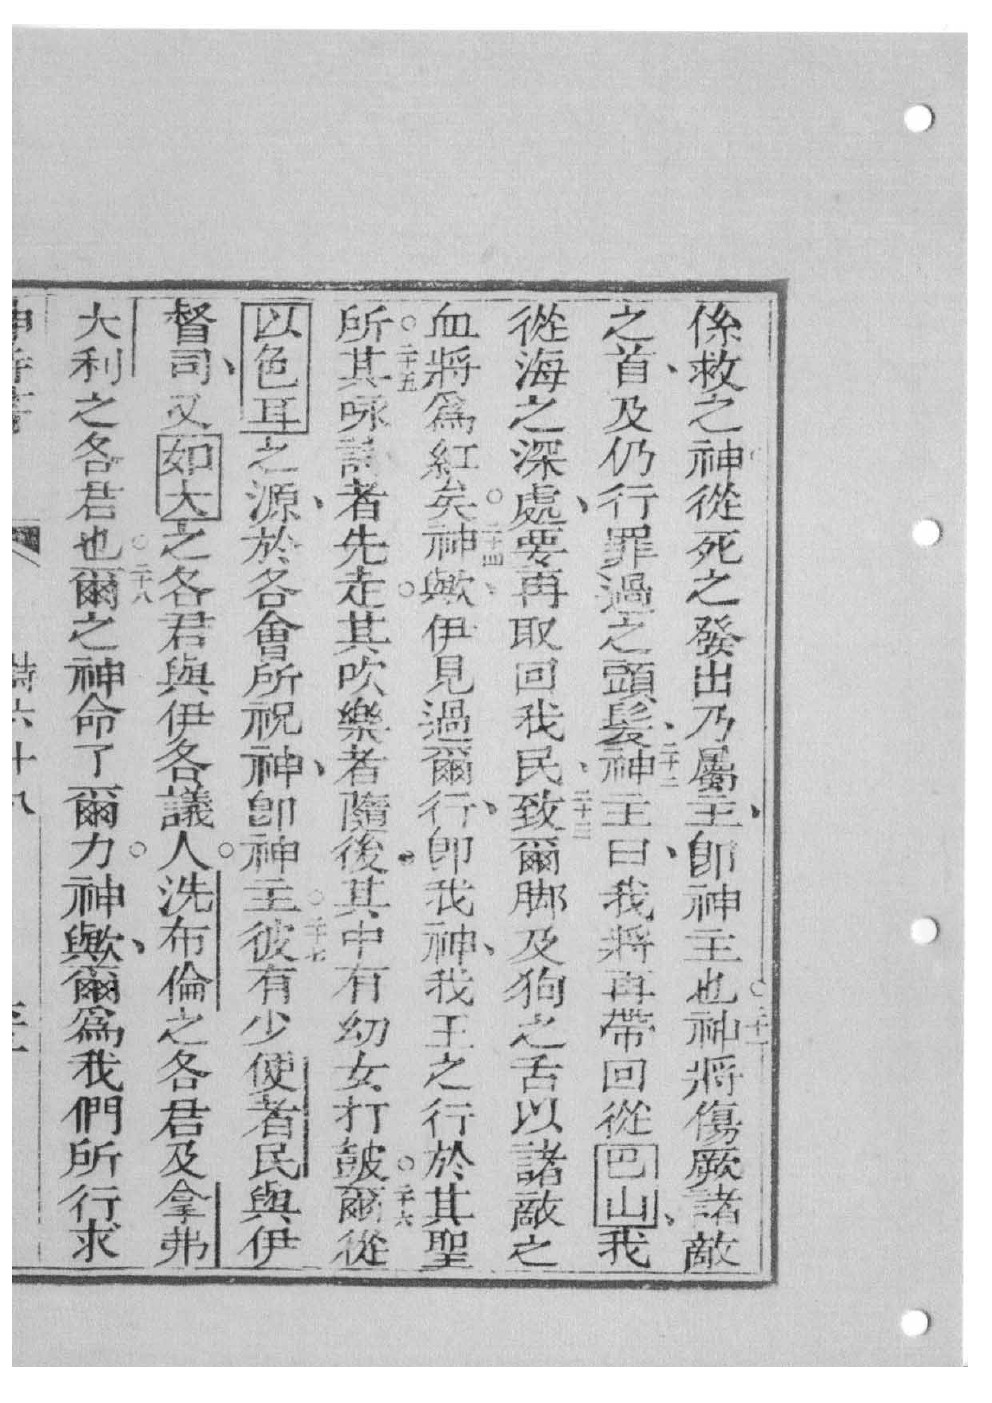 係救之神從死之發出乃屬主、卽神主也。二十一神將傷厥諸敵
之首、及仍行罪過之頭髮、二十二神主曰、我將再帶回從巴山、我
從海之深處、要再取回我民、二十三致爾脚及狗之舌以諸敵之
血將爲紅矣。二十四神歟、伊見過爾行、卽我神、我王之行於其聖
所。二十五其咏詩者先走。其吹樂者隨後。其中有幼女打皷。二十六爾從
以色耳之源、於各會所祝神、卽神主。二十七彼有少使者民與伊
督司、又如大之各君與伊各議人。洗布倫之各君及拿弗
大利之各君也。二十八爾之神命了爾力。神歟、爾爲我們所行求
詩六十八